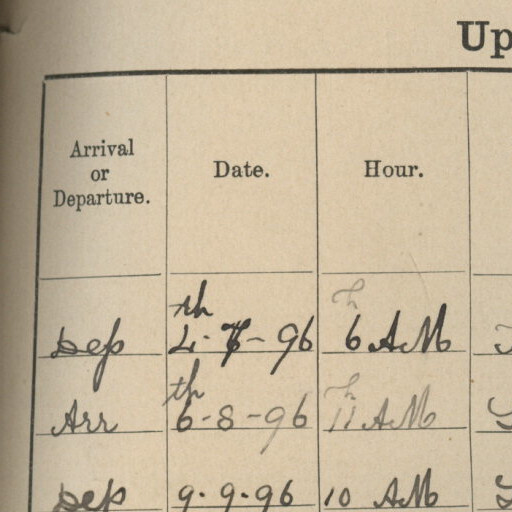 Up
Arrival or Departure. Date. Hour.
Dep 4th - 96 6h AM
Arr 6th-8-96 11h AM
Dep 9.9.96 10 AM